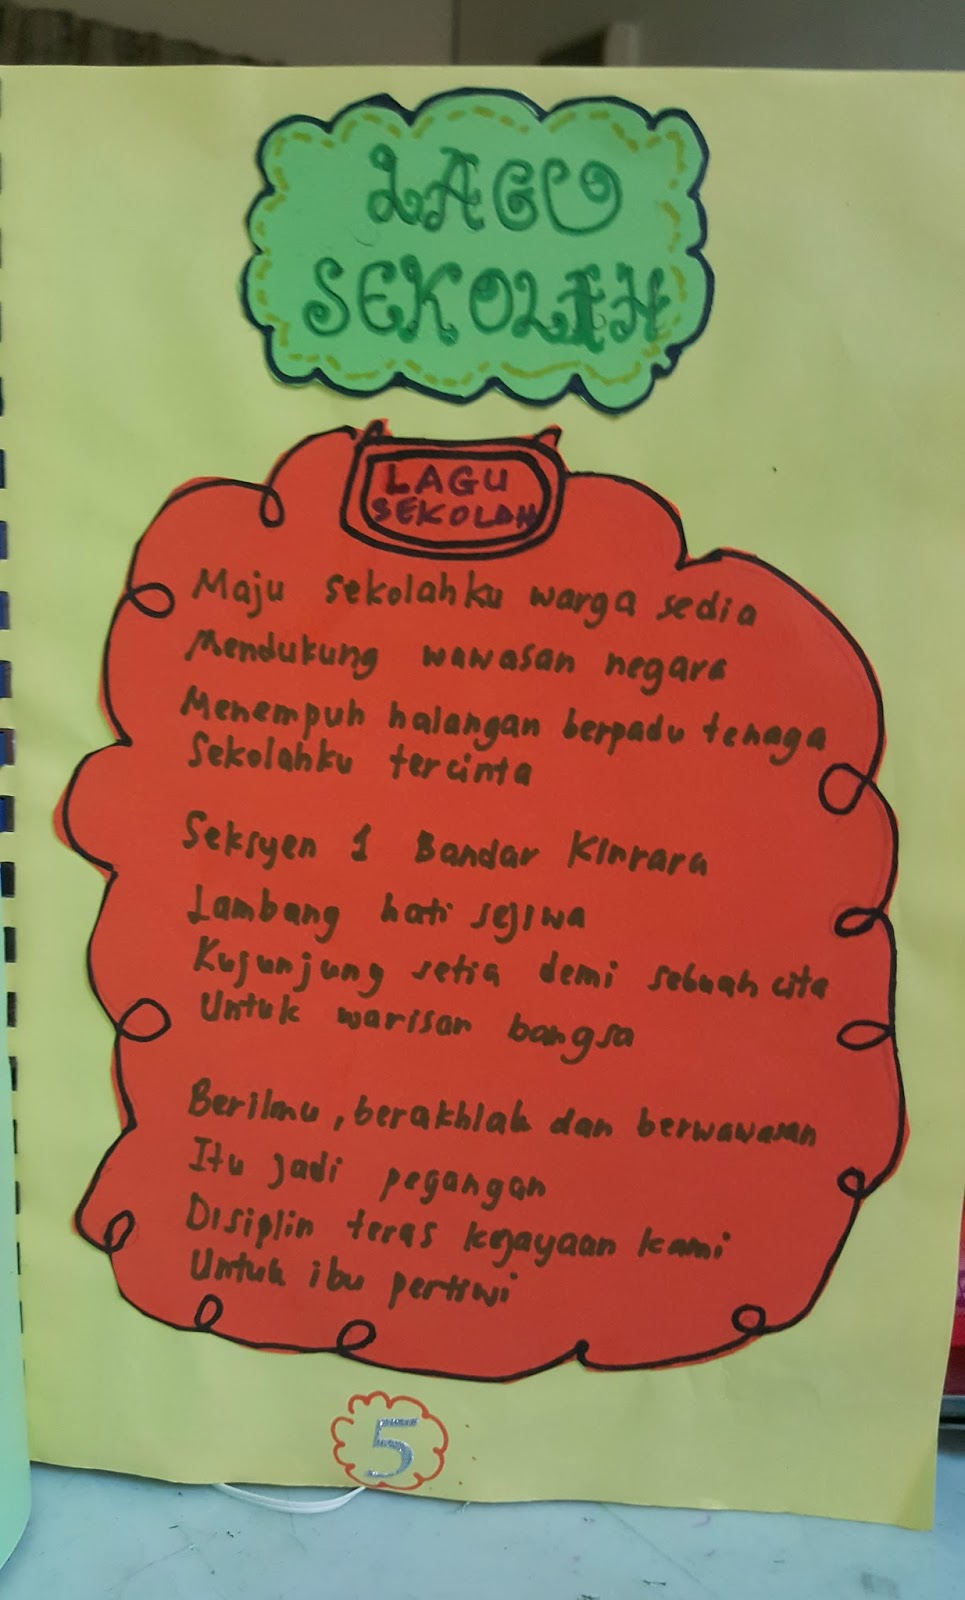 LAGU
SEKOLAH
LAGU
SEKOLAH
Maju sekolahku warga sedia
Mendukung wawasan negara
Menempuh halangan berpadu tenaga
Sekolahku tercinta
Seksyen 1 Bandar Kinrara
Lambang hati sejiwa
Kujunjung setia demi sebuah cita
Untuk warisan bangsa
Berilmu, berakhlak dan berwawasan
Itu jadi pegangan
Disiplin teras kejayaan kami
Untuk ibu pertiwi
5